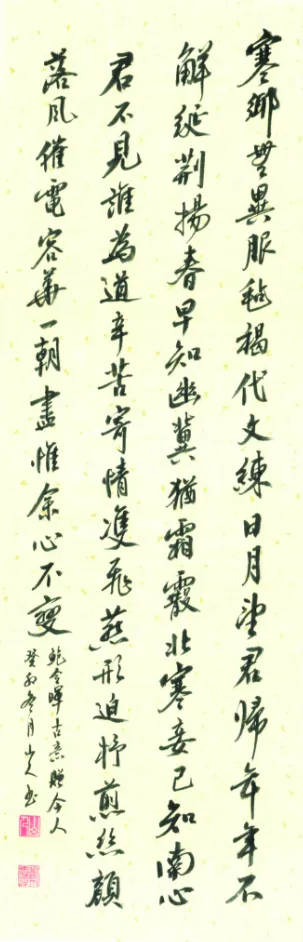 寒鄉無異服毡褐代文練日月望君歸年年不
解綖荊揚春早知幽冀猶霜霰北寒妾已知南心
君不見誰為道辛苦寄情雙飛燕形迫杼煎絲顏
落風催電容華一朝盡惟余心不變
鮑令暉古意贈今人
癸卯冬月山人書